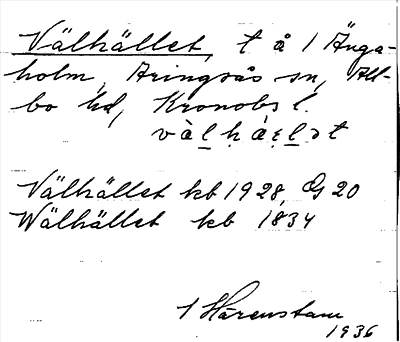 Välhället, t å 1 Änga-
holm, Aringsås sn, All-
bo hd, Kronobs l.
Välhället kb 1928, G 20
Wälhället kb 1834
1 Härenstam
1936